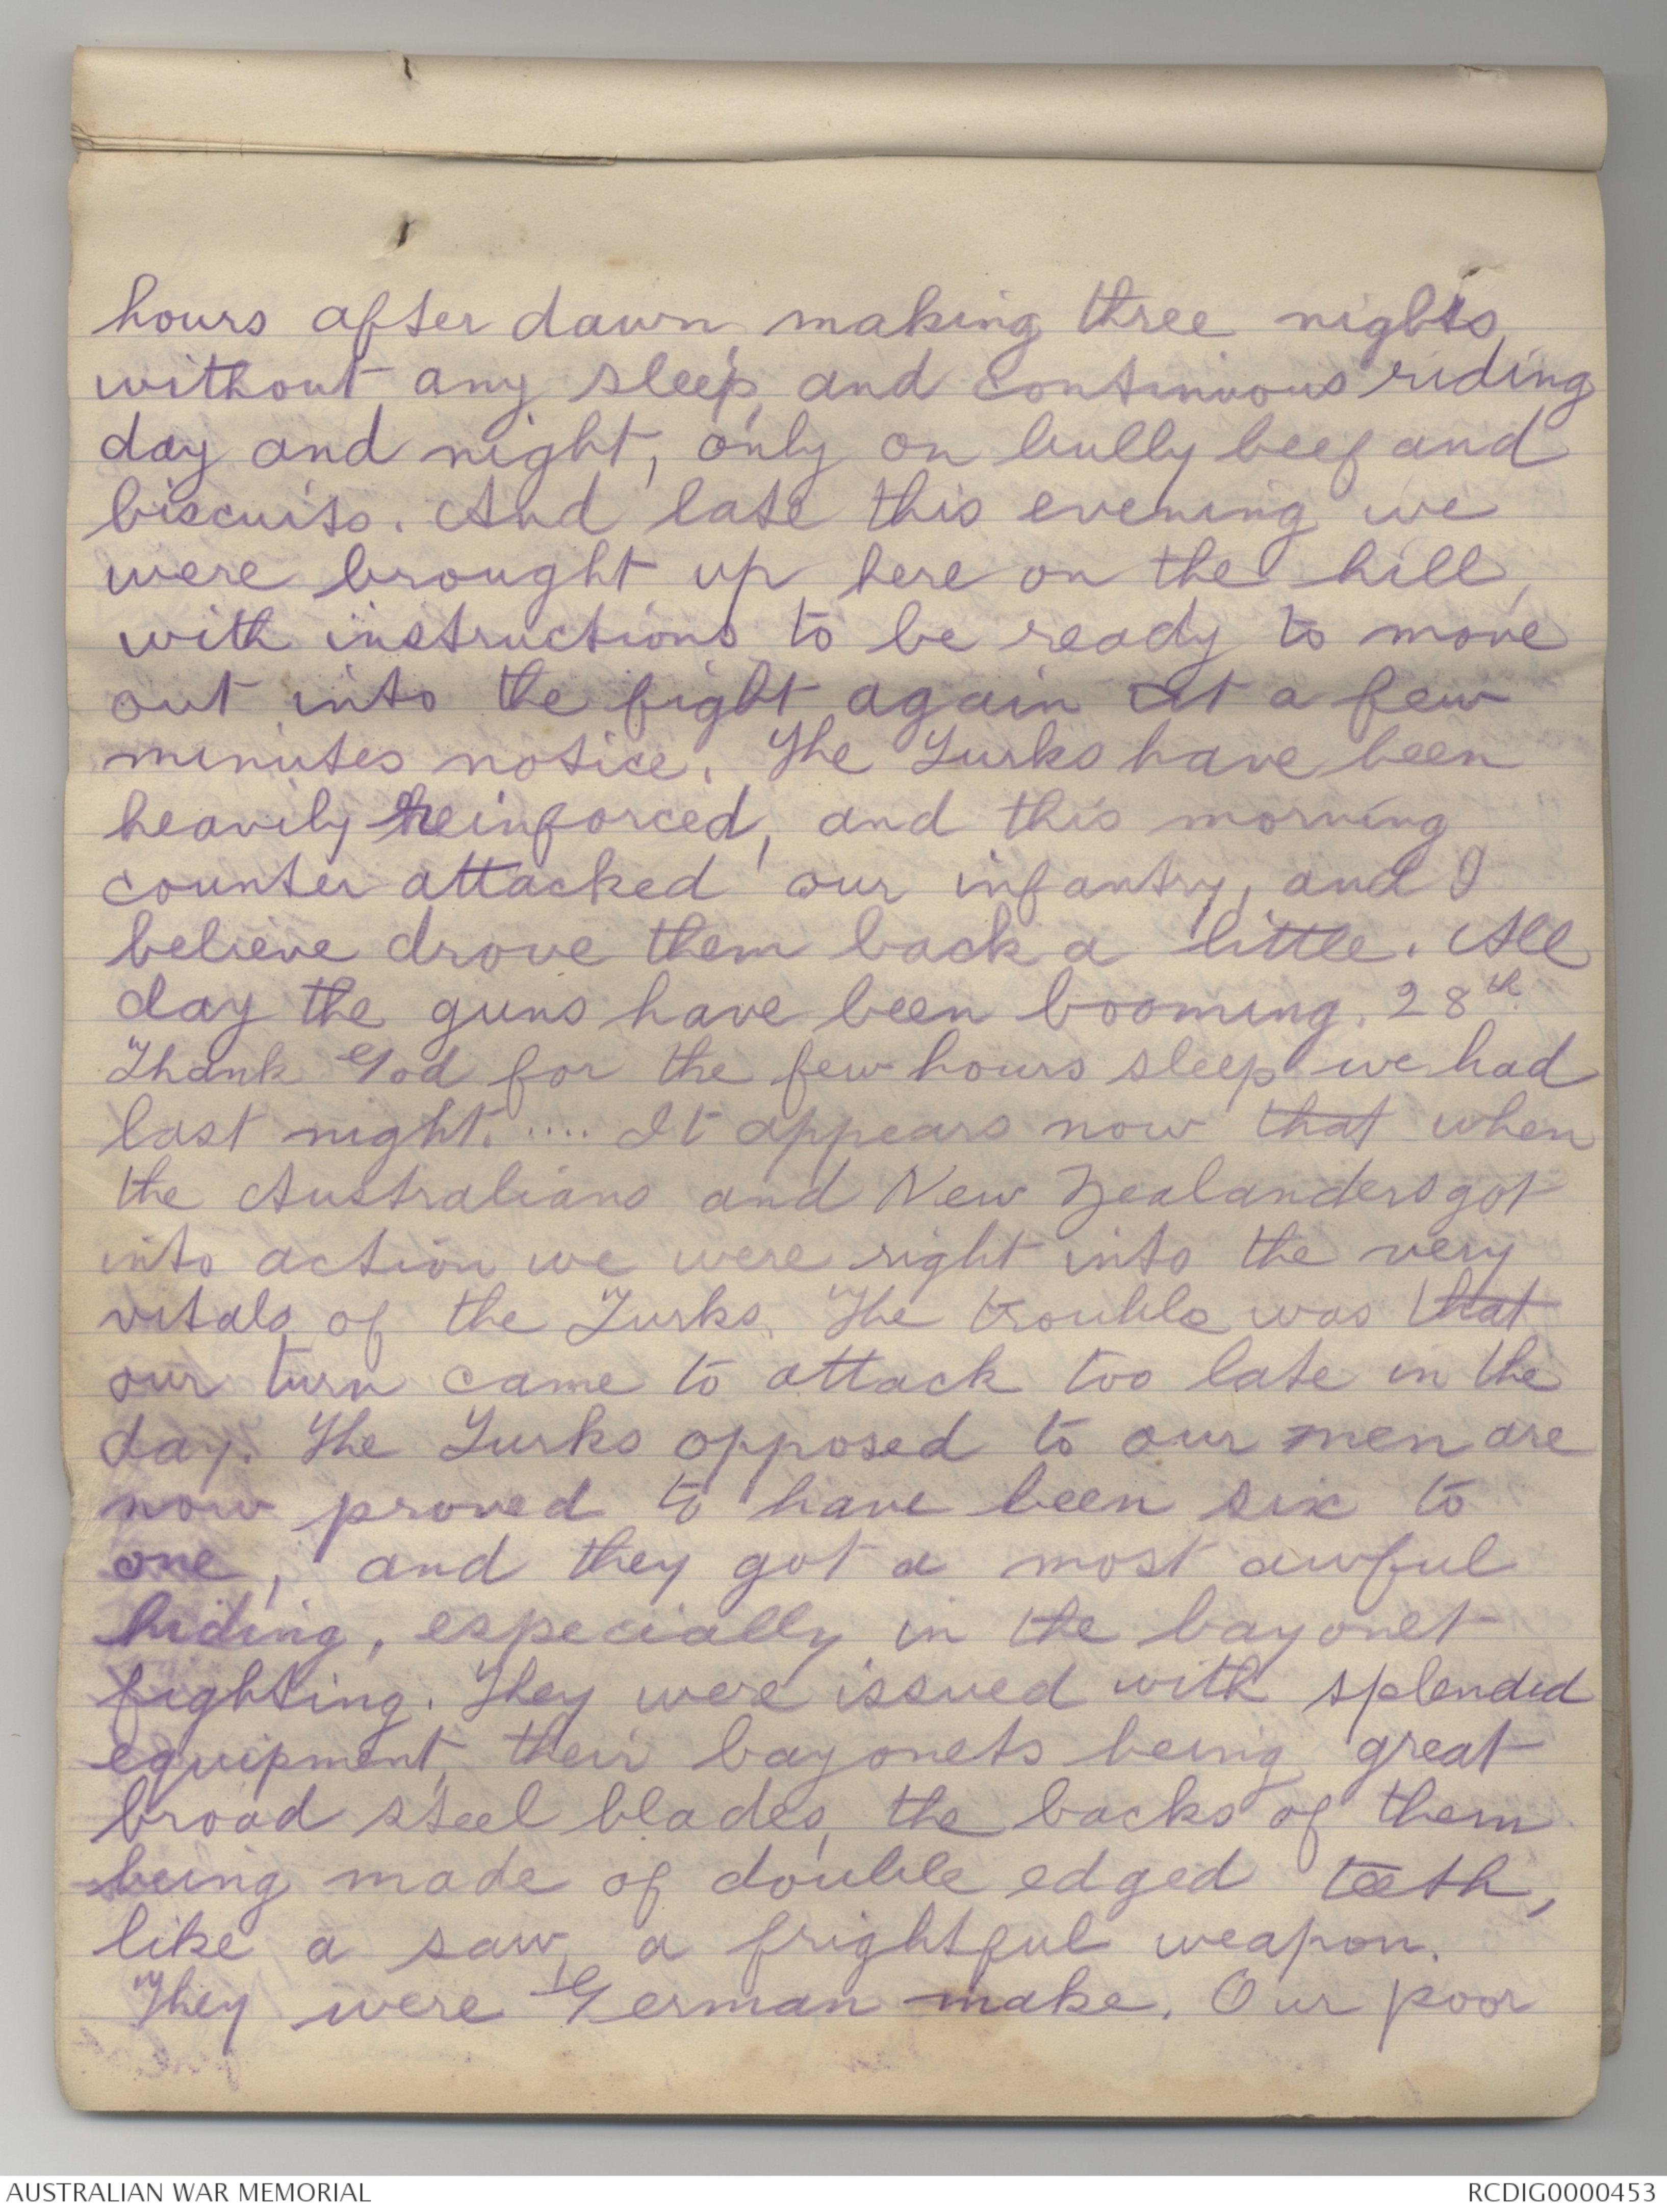 hours after dawn, making three nights
without any sleep, and continuous riding
day and night, only on bully beef and
biscuits. And late this evening we
were brought up here on the hill,
with instructions to be ready to move
out into the fight again at a few
minutes notice. The Turks have been
heavily reinforced, and this morning
counter attacked our infantry, and I
believe drove them back a little. All
day the guns have been booming. 28th.
Thank God for the few hours sleep we had
last night. .... It appears now that when
the Australians and New Zealanders got
into action we were right into the very
vitals of the Turks. The trouble was that
our turn came to attack too late in the
day. The Turks opposed to our men are
now proved to have been six to
one, and they got a most awful
hiding, especially in the bayonet
fighting. They were issued with splendid
equipment, their bayonets being great
broad steel blades, the backs of them
being made of double edged teeth,
like a saw, a frightful weapon.
They were German make. Our poor
AUSTRALIAN WAR MEMORIAL
RCDIG0000453